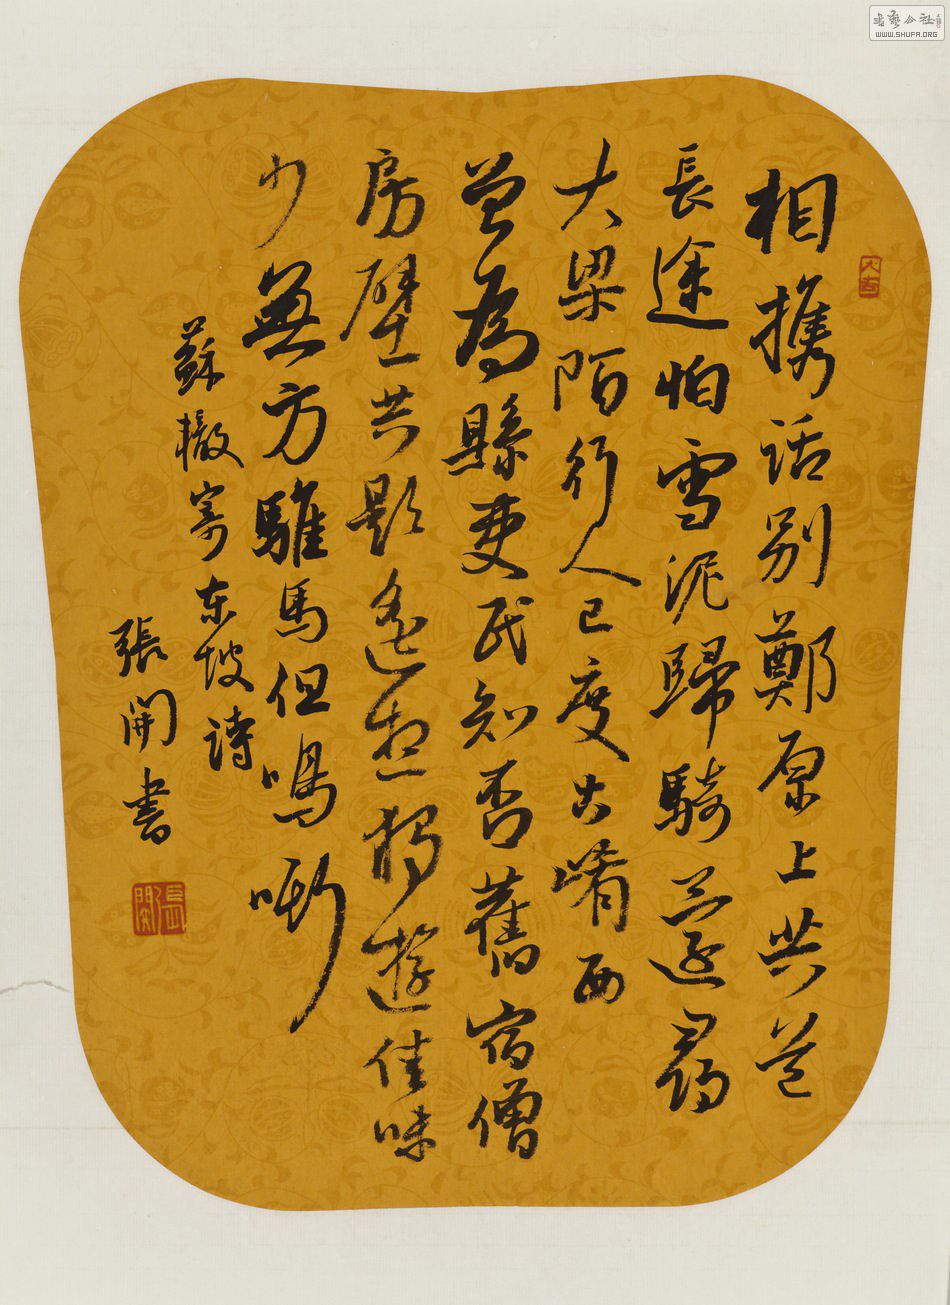 相携話别鄭原上共道
長途怕雪泥歸騎還尋
大梁陌行人已度古崤西
曾為縣吏民知否舊宿僧
房壁共題遥想獨遊佳味
少無方騅馬但鳴嘶
蘇轍寄东坡詩
張開書
大吉
張開
書藝公社
WWW.SHUFA.ORG